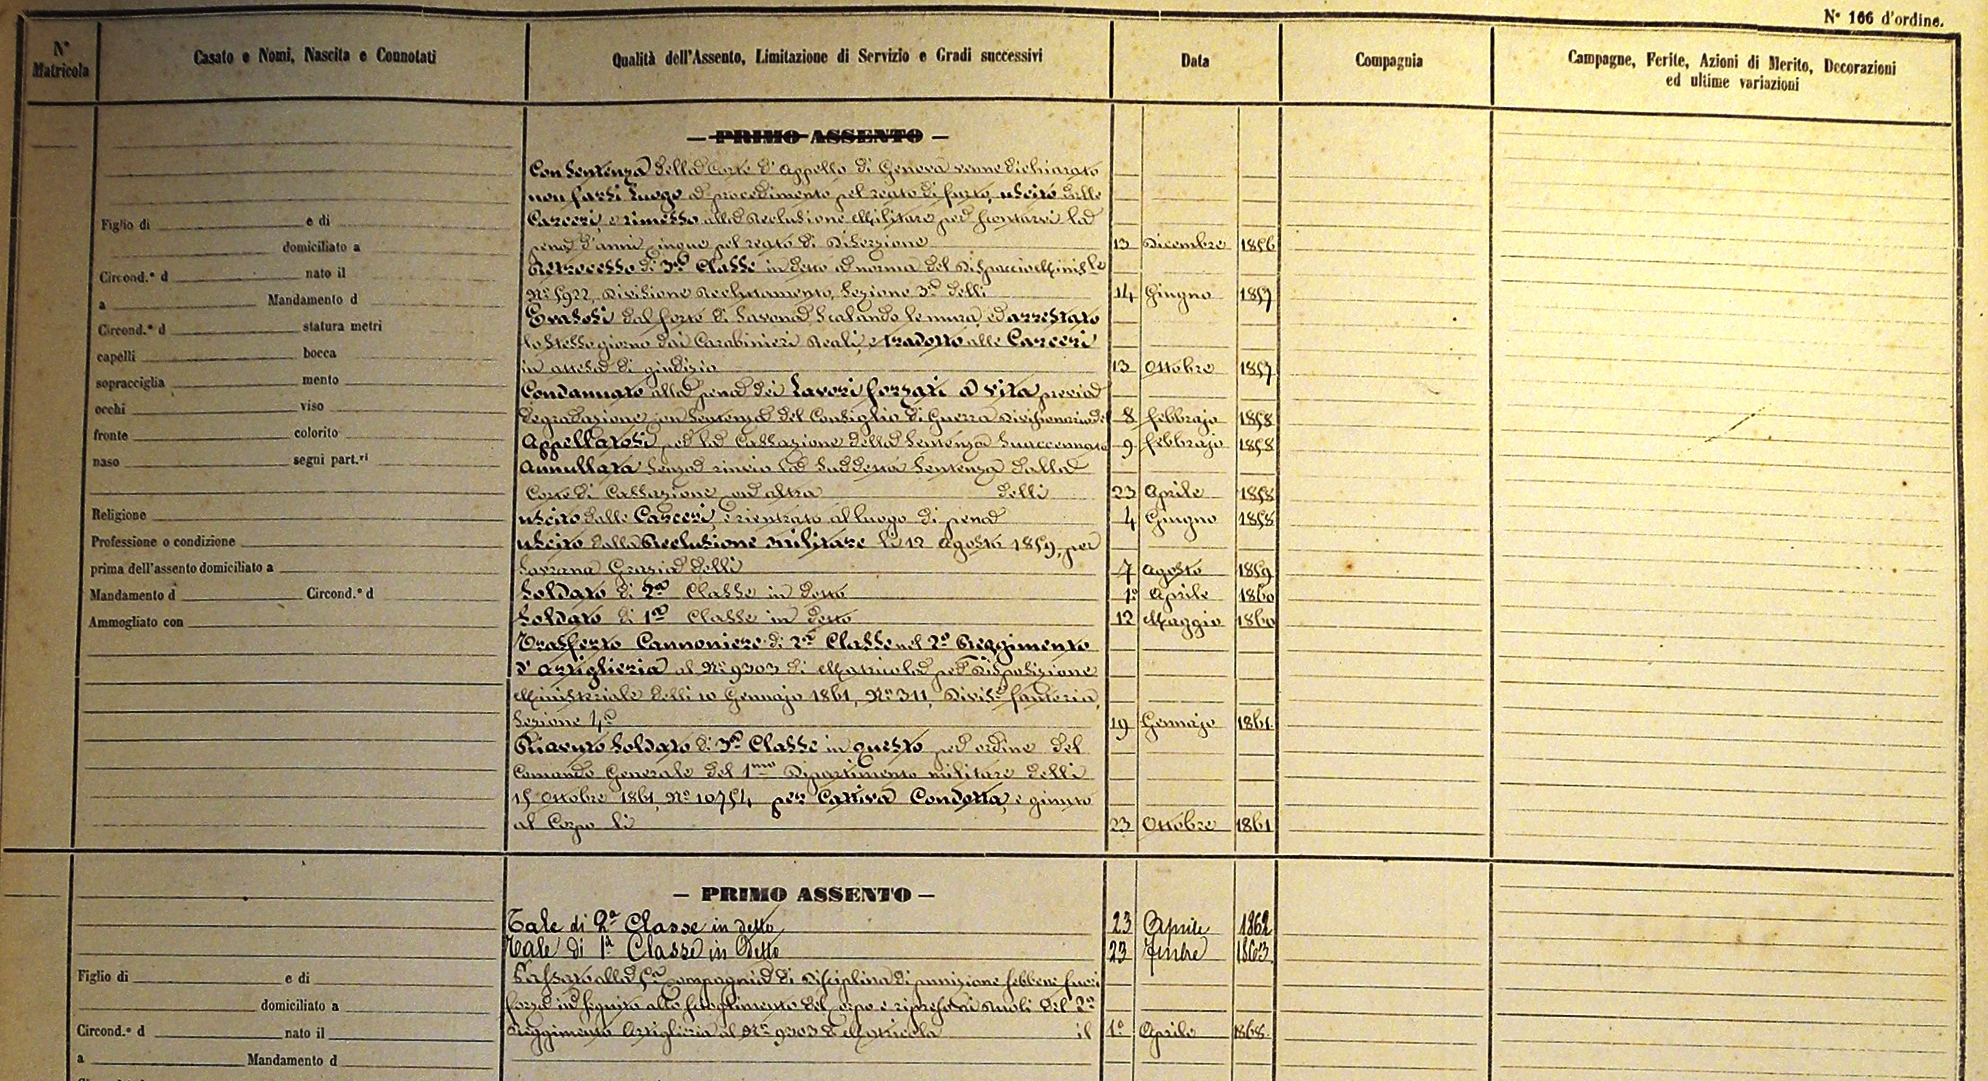 N° 166 d'ordine.
N° Matricola
Casato e Nomi, Nascita e Connotati
Qualità dell'Assento, Limitazione di Servizio e Gradi successivi
Data
Compagnia
Campagne, Ferite, Azioni di Merito, Decorazioni
ed ultime variazioni
— PRIMO ASSENTO —
Con Sentenza della Corte d'Appello di Genova venne dichiarato
non farsi luogo a procedimento pel reato di furto, uscito dalle
Carceri, e rimesso alla Reclusione Militare per scontarvi la
pena d'anni cinque pel reato di Diserzione 13 Dicembre 1856
Retrocesso di 3a Classe in detto a norma del Dispaccio Minist.le
N° 5922, Divisione Reclutamento, Sezione 3a delli 14 Giugno 1857
Evasosi dal forte di Savona scalando le mura, ed arrestato
lo stesso giorno dai Carabinieri Reali, e tradotto alle Carceri
in attesa di giudizio 13 Ottobre 1857
Condannato alla pena dei Lavori forzati a vita previa
degradazione con Sentenza del Consiglio di Guerra Divisionario del 8 febbrajo 1858
Appellatosi per la Cassazione della Sentenza suaccennata 9 febbrajo 1858
Annullata senza rinvio la suddetta Sentenza dalla
Corte di Cassazione con altra delli 23 Aprile 1858
Uscito dalle Carceri, e rientrato al luogo di pena 4 Giugno 1858
Uscito dalla Reclusione Militare li 12 Agosto 1859, per
Sovrana Grazia delli 7 Agosto 1859
Soldato di 2a Classe in detto 1° Aprile 1860
Soldato di 1a Classe in detto 12 Maggio 1860
Trasferto Cannoniere di 2a Classe nel 2° Reggimento
d'Artiglieria al N° 9303 di Matricola per Disposizione
Ministeriale delli 10 Gennajo 1861, N° 311, Divis.e fanteria,
Sezione 4a 19 Gennajo 1861
Riavuto Soldato di 3a Classe in questo per ordine del
Comando Generale del 1mo Dipartimento militare delli
15 Ottobre 1861, N° 10754 per Cattiva Condotta, e giunto
al Corpo li 23 Ottobre 1861
Figlio di e di
domiciliato a
Circond.o d nato il
a Mandamento d
Circond.o d statura metri
capelli bocca
sopracciglia mento
occhi viso
fronte colorito
naso segni part.ri
Religione
Professione o condizione
prima dell'assento domiciliato a
Mandamento d Circond.o d
Ammogliato con
— PRIMO ASSENTO —
Tale di 2a Classe in detto 23 Aprile 1862
Tale di 1a Classe in detto 23 1863
Passato alla compagnia di Disciplina di punizione sebbene fuori
forza in seguito allo scioglimento del corpo e ruoli del 2°
Reggimento Artiglieria al N° 9303 di Matricola il 1° Aprile 1868
Figlio di e di
domiciliato a
Circond.o d nato il
a Mandamento d